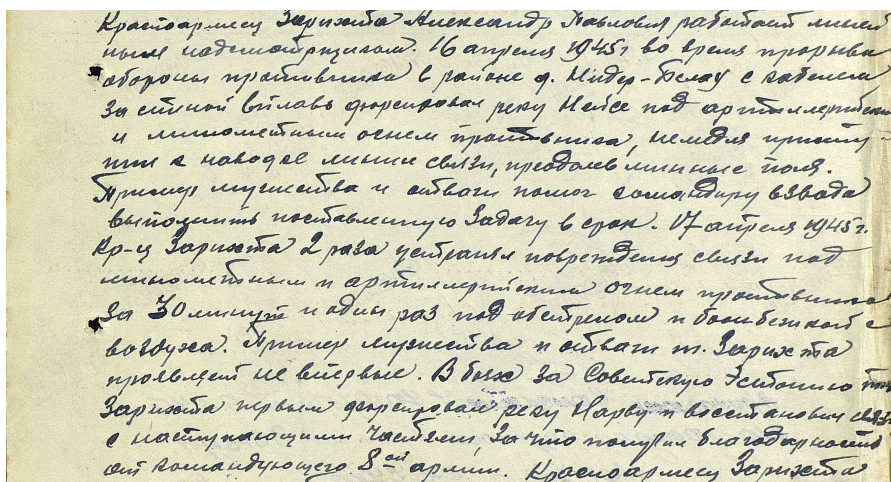 Красноармеец Зарихта Александр Павлович работает линей
ным надсмотрщиком. 16 апреля 1945г во время прорыва
обороны противника в районе д. Нидер-Белау с кабелем
за спиной вплавь форсировал реку Нейсе под артиллерийским
и минометным огнем противника, немедля присту-
пил к наводке линии связи, преодолев минные поля.
Пример мужества и отваги помог командиру взвода
выполнить поставленную задачу в срок. 17 апреля 1945г.
Кр-ц Зарихта 2 раза устранял повреждения связи под
минометным и артиллерийским огнем противника
за 30 минут и один раз под обстрелом и бомбежкой с
воздуха. Пример мужества и отваги т. Зарихта
проявляет не впервые. В боях за Советскую Эстонию тов
Зарихта первым форсировал реку Нарву и восстановил связь
с наступающими частями, за что получил благодарность
от командующего 8ой армии. Красноармеец Зарихта